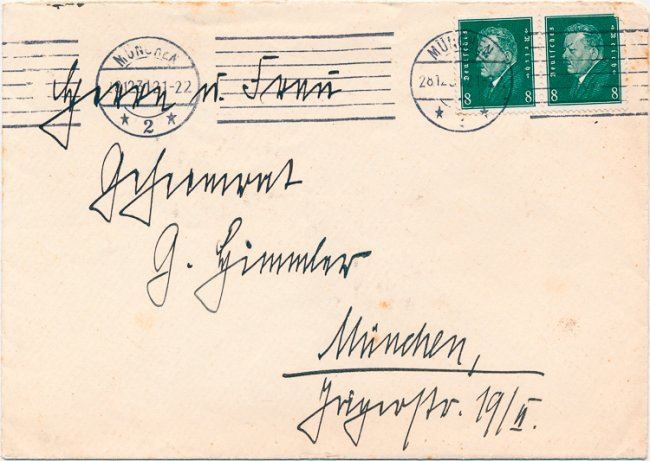 MÜNCHEN
2
MÜN
28.12.
Deutsches Reich
8 8
Deutsches Reich
8 8
Herrn u. Frau
Geheimrat
G. Himmler
München,
Jägerstr. 19/II.